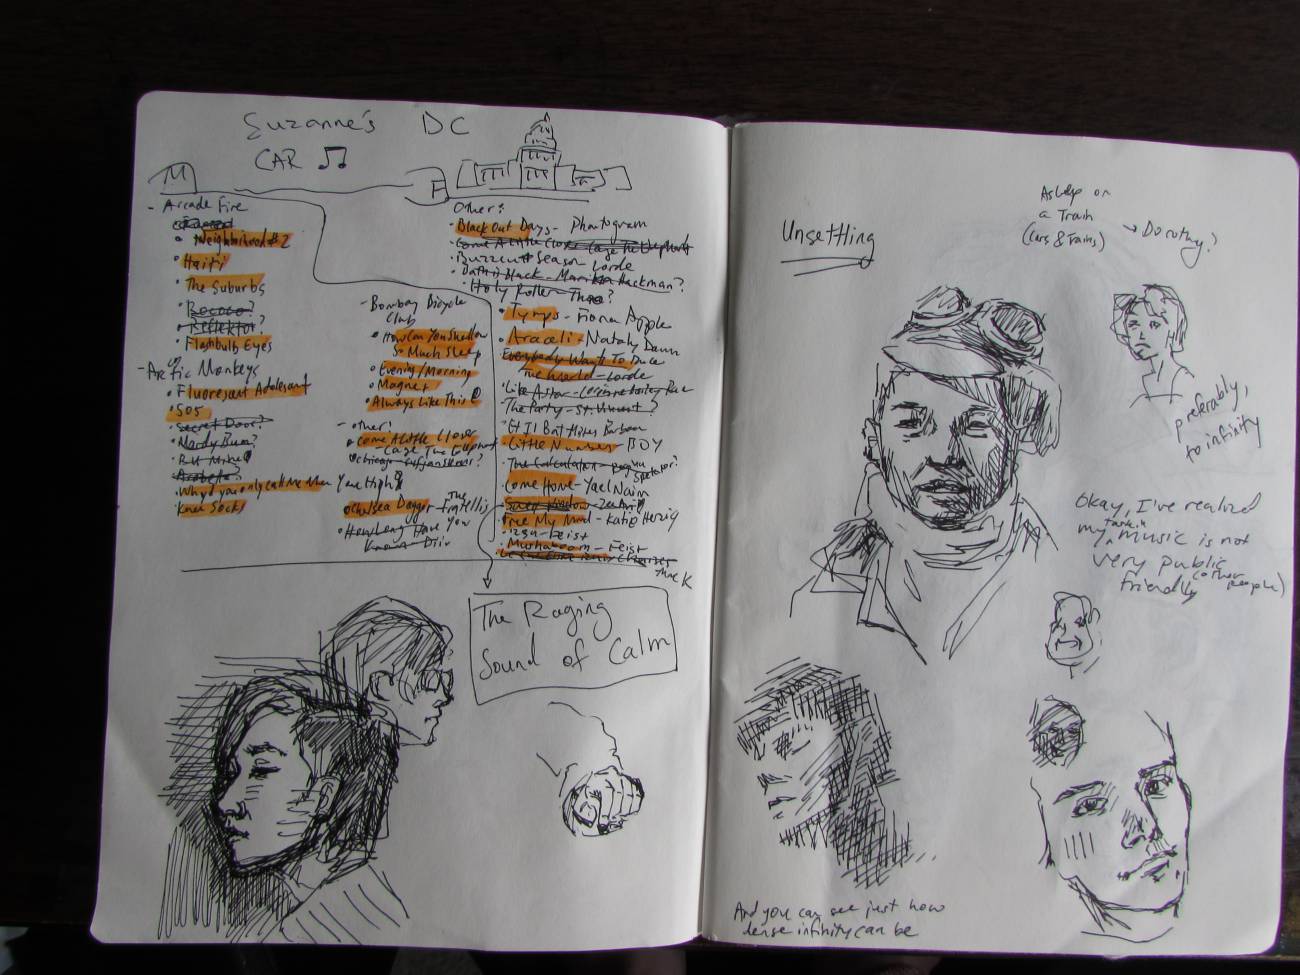 Suzanne's DC
CAR
M
F
- Arcade Fire
• Neighborhood #2
• Haiti
• The Suburbs
• Rococo?
• Reflektor?
• Flashbulb Eyes
- Arctic Monkeys
• Fluorescent Adolescent
• 505
• Secret Door?
• Mardy Bum?
• Why'd you only call me when
You're High?
• Knee Socks
- Bombay Bicycle
Club
• How Can You Swallow
So Much Sleep
• Evening/Morning
• Magnet
• Always Like This
- Other:
• Come A Little Closer
- Cage The Elephant
• Chicago - Sufjan Stevens?
• Chelsea Dagger - The Fratellis
• How Long Have You
Known - Diiv
Other:
• Black Out Days - Phantogram
• Come A Little Closer - Cage The Elephant
• Buzzcut Season Lorde
• Holy Roller - Thao?
• Tymps - Fiona Apple
• Araceli - Nataly Dawn
Everybody Wants To Rule
The World - Lorde
• The Party - St. Vincent?
• Little Numbers - BOY
• The Calculation - Regina
Spektor?
• Come Home - Yael Naim
• Free My Mind - Katie Herzig
• 1234 - Feist
• Mushaboom - Feist
The Raging
Sound of Calm
Unsettling
Asleep on
a Train
(Cars & Trains)
→ Dorothy?
preferably,
to infinity
Okay, I've realized
my taste in music is not
very public
friendly (other people)
And you can see just how
dense infinity can be